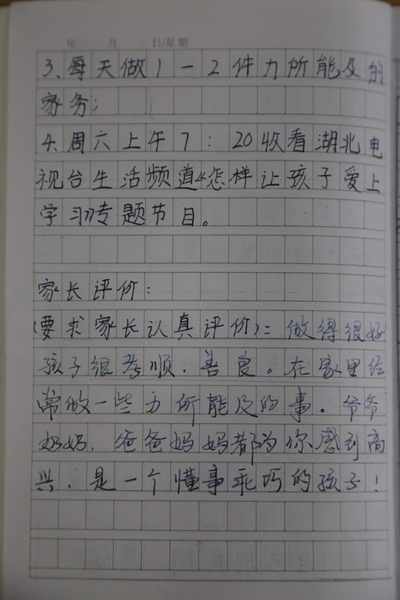 年 月 日/星期
3、每天做1—2件力所能及的
家务；
4、周六上午7：20收看湖北电
视台生活频道《怎样让孩子爱上
学习》专题节目。
家长评价：
（要求家长认真评价）：做得很好
孩子很孝顺．善良。在家里经
常做一些力所能及的事．爷爷
奶奶．爸爸妈妈都为你感到高
兴．是一个懂事乖巧的孩子！